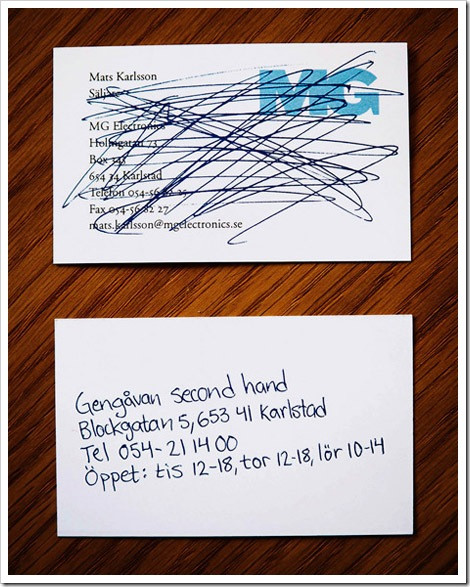 Mats Karlsson
MG
MG Electronics
Holmgatan 73
Box 343
654 34 Karlstad
Telefon 054-56 82 25
Fax 054-56 82 27
mats.karlsson@mgelectronics.se
Gengåvan second hand
Blockgatan 5, 653 41 Karlstad
Tel 054-21 14 00
Öppet: tis 12-18, tor 12-18, lör 10-14